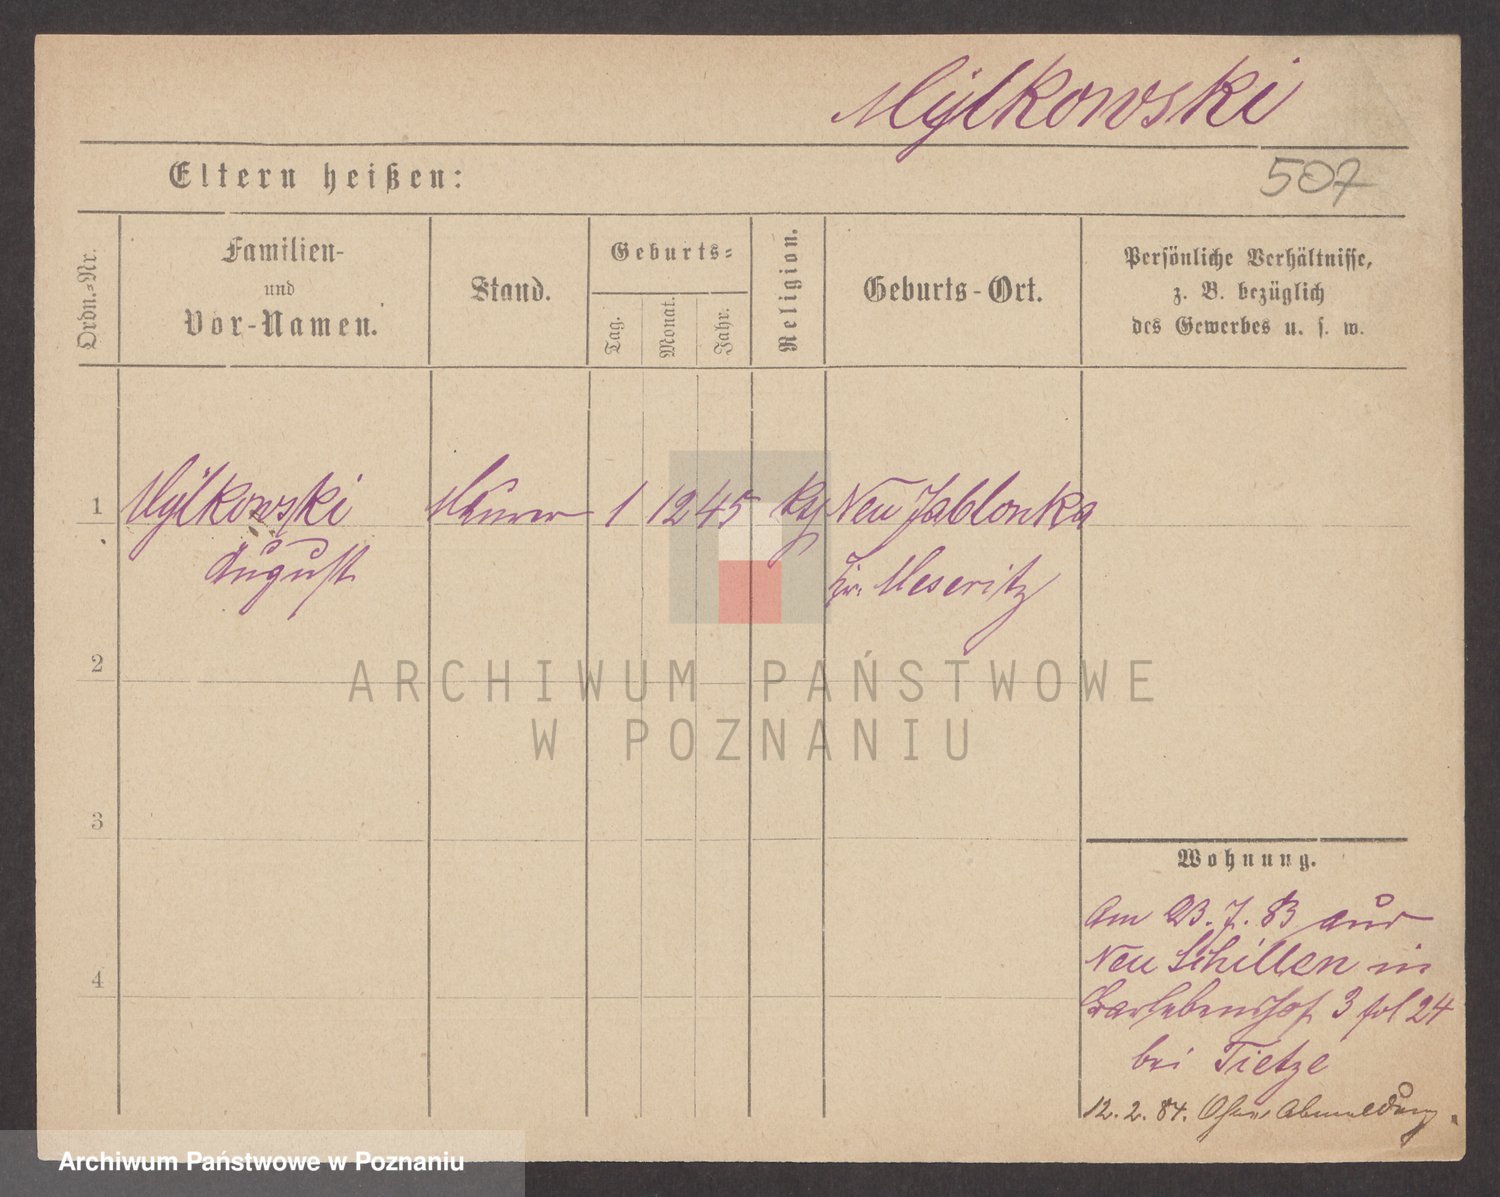 Mÿlkowski
Eltern heißen:
507
Ordn.=Nr.
Familien-
und
Vor-Namen.
Stand.
Geburts=
Tag.
Monat.
Jahr.
Religion.
Geburts-Ort.
Persönliche Verhältnisse,
z. B. bezüglich
des Gewerbes u. s. w.
1 Mÿlkowski 1 12 45 Neu Jablonka
August Kr. Meseritz
2
ARCHIWUM PAŃSTWOWE
W POZNANIU
3
Wohnung.
Am 23. 7. 83 aus
Neu Schillen in
4
3 fol 24
bei Tietze
12. 2. 84. Ohne Abmeldung.
Archiwum Państwowe w Poznaniu